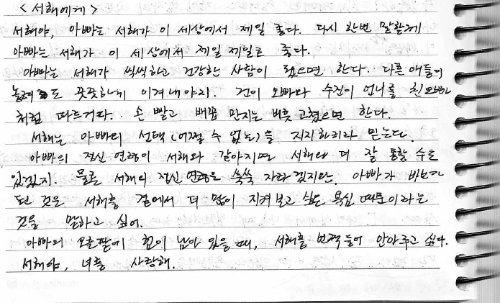 < 서해에게 >
서해야, 아빠는 서해가 이 세상에서 제일 좋다. 다시 한번 말할게
아빠는 서해가 이 세상에서 제일 제일로 좋다.
아빠는 서해가 씩씩하고 건강한 사람이 됐으면 한다. 다른 애들이
놀려도 꿋꿋하게 이겨내야지. 건이 오빠와 수진이 언니를 친
처럼 따르거라. 손 빨고 배꼽 만지는 버릇 고쳤으면 한다.
서해는 아빠의 선택(어쩔 수 없는)을 지지하리라 믿는다.
아빠의 정신 연령이 서해와 같아지면 서해와 더 잘 통할 수도
있겠지. 물론 서해의 정신 연령도 쑥쑥 자라겠지만. 아빠가
된 것은 서해를 곁에서 더 많이 지켜보고 싶은 욕심 때문이라는
것을 말하고 싶어.
아빠의 오른팔에 힘이 남아 있을 때, 서해를 번쩍 들어 안아주고 싶다.
서해야, 너를 사랑해.